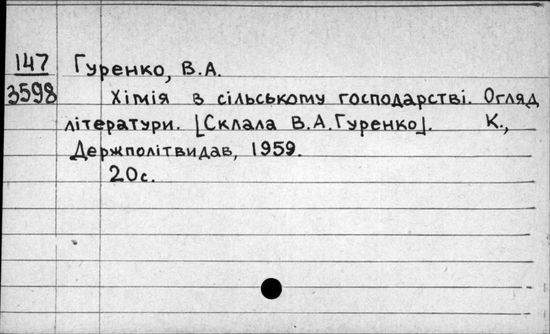 147
3598
Гуренко, В.А.
Хімія в сільському господарстві. Огляд
літератури. [Склала В.А.Гуренко]. К.,
Держполітвидав, 1959.
20с.